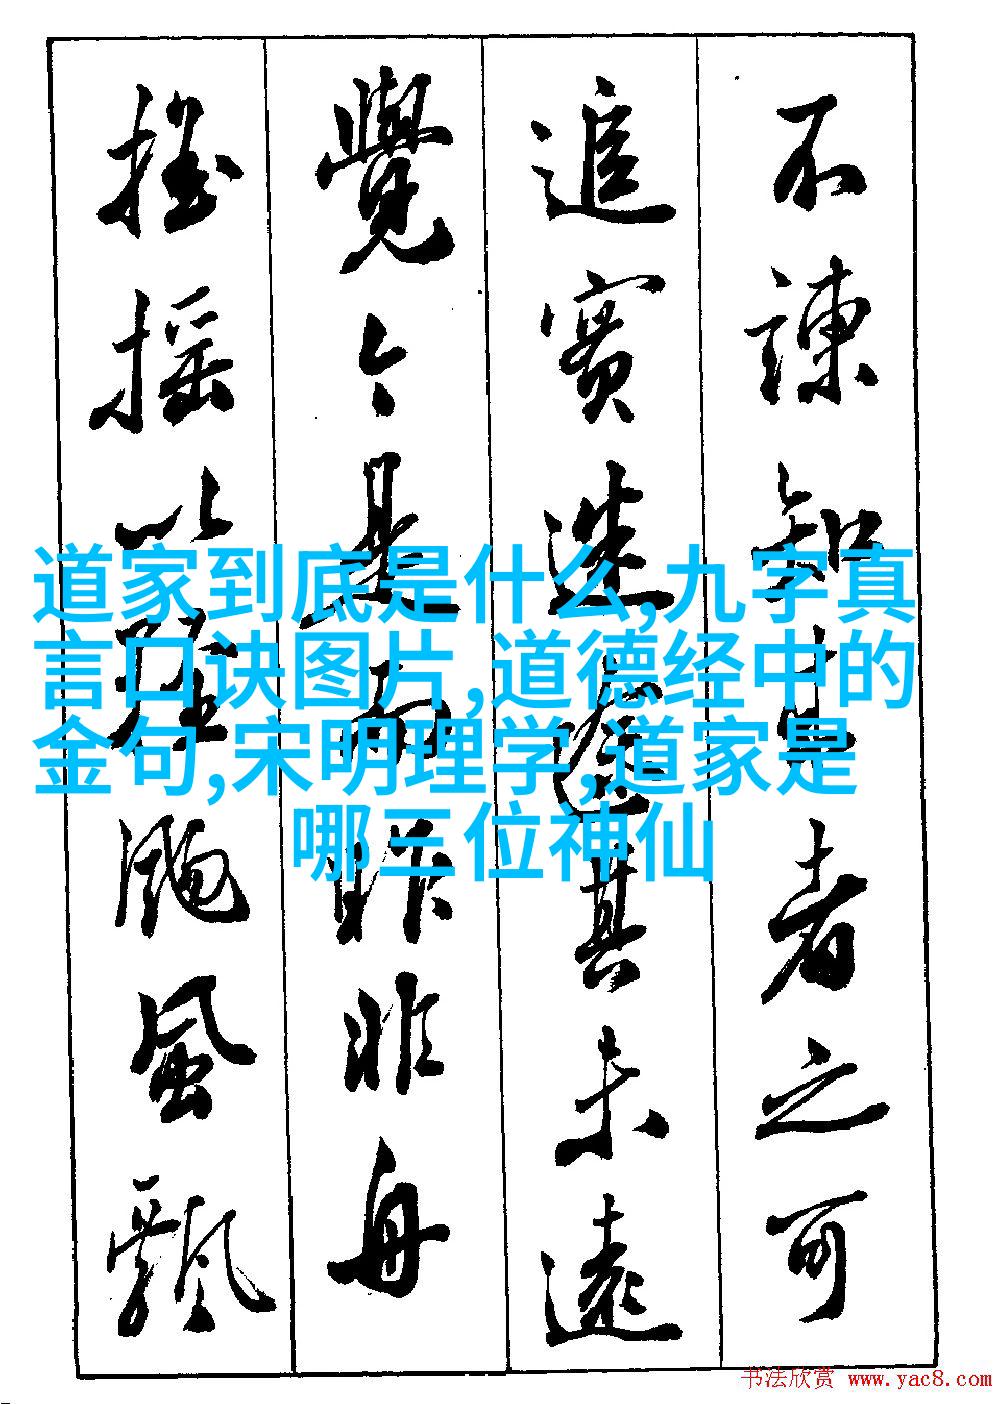 不諫知来者之可
追實迷途其未遠
覺今是而昨非舟
摇摇以輕颺風飄
道家到底是什么,九字真
言口诀图片,道德经中的
金句,宋明理学,道家是
哪三位神仙
书法欣赏 www.yac8.com